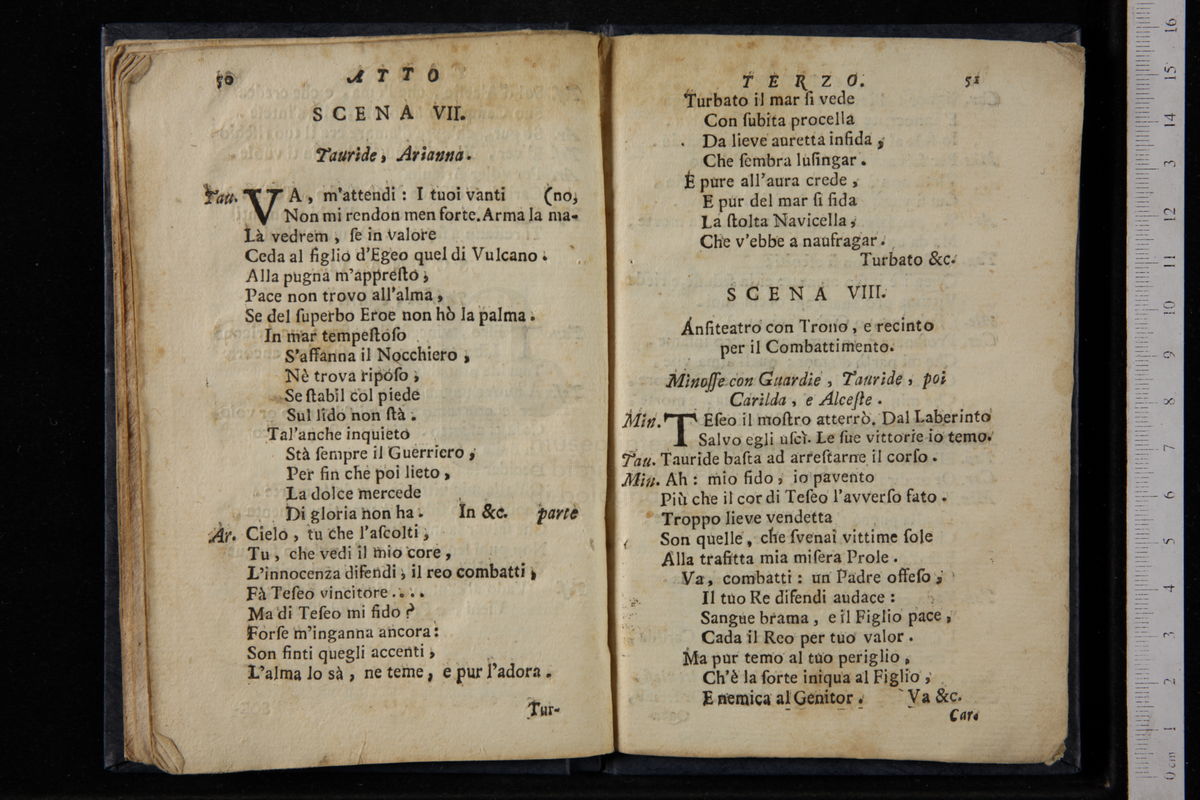 50 ATTO
SCENA VII.
Tauride, Arianna.
Tau. VA, m'attendi: I tuoi vanti (no,
Non mi rendon men forte. Arma la ma-
Là vedrem, ſe in valore
Ceda al figlio d'Egeo quel di Vulcano.
Alla pugna m'appreſto,
Pace non trovo all'alma,
Se del ſuperbo Eroe non hò la palma.
In mar tempeſtoſo
S'affanna il Nocchiero,
Nè trova ripoſo,
Se ſtabil col piede
Sul lido non ſtà.
Tal'anche inquieto
Stà ſempre il Guerriero,
Per fin che poi lieto,
La dolce mercede
Di gloria non ha. In &c. parte
Ar. Cielo, tu che l'aſcolti,
Tu, che vedi il mio core,
L'innocenza difendi, il reo combatti,
Fà Teſeo vincitore....
Ma di Teſeo mi fido?
Forſe m'inganna ancora:
Son finti quegli accenti,
L'alma lo sà, ne teme, e pur l'adora.
Tur-
TERZO. 51
Turbato il mar ſi vede
Con ſubita procella
Da lieve auretta infida,
Che ſembra luſingar.
E pure all'aura crede,
E pur del mar ſi fida
La ſtolta Navicella,
Che v'ebbe a naufragar.
Turbato &c.
SCENA VIII.
Anfiteatro con Trono, e recinto
per il Combattimento.
Minoſſe con Guardie, Tauride, poi
Carilda, e Alceſte.
Min. TEſeo il moſtro atterrò. Dal Laberinto
Salvo egli uſcì. Le ſue vittorie io temo.
Tau. Tauride baſta ad arreſtarne il corſo.
Min. Ah: mio fido, io pavento
Più che il cor di Teſeo l'avverſo fato.
Troppo lieve vendetta
Son quelle, che ſvenai vittime ſole
Alla trafitta mia miſera Prole.
Va, combatti: un Padre offeſo,
Il tuo Re difendi audace:
Sangue brama, e il Figlio pace,
Cada il Reo per tuo valor.
Ma pur temo al tuo periglio,
Ch'è la ſorte iniqua al Figlio,
E nemica al Genitor. Va &c.
Car.